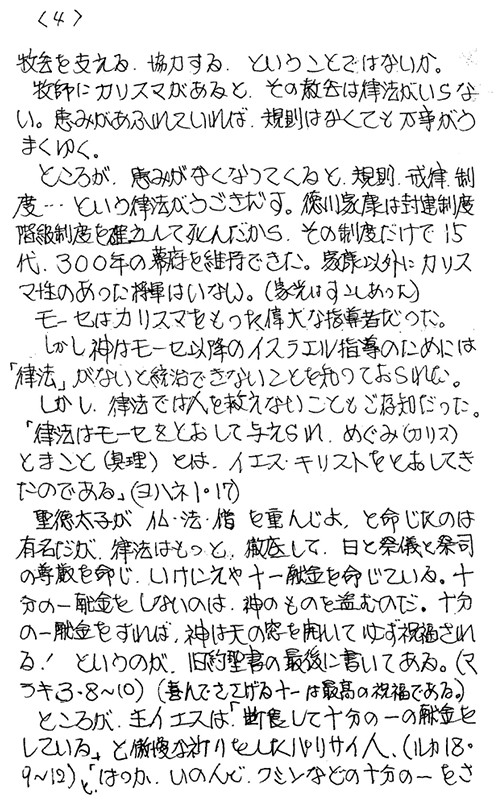 〈4〉
牧会を支える、協力する、ということではないか。
牧師にカリスマがあると、その教会は律法がいらな
い。恵みがあふれていれば、規則はなくても万事がう
まくゆく。
ところが、恵みがなくなってくると、規則、戒律、制
度…という律法がうごきだす。徳川家康は封建制度
階級制度を確立して死んだから、その制度だけで15
代、300年の幕府を維持できた。家康以外にカリス
マ性のあった将軍はいない。(家光はすこしあった)
モーセはカリスマをもった偉大な指導者だった。
しかし神はモーセ以降のイスラエル指導のためには
「律法」がないと統治できないことを知っておられた。
しかし、律法では人を救えないこともご存知だった。
「律法はモーセをとおして与えられ、めぐみ(カリス)
とまこと(真理)とは、イエス・キリストをとおしてき
たのである」(ヨハネ1・17)
聖徳太子が仏・法・僧を重んじよ、と命じたのは
有名だが、律法はもっと、徹底して、日と祭儀と祭司
の尊敬を命じ、いけにえや十一献金を命じている。十
分の一献金をしないのは、神のものを盗むのだ。十分
の一献金をすれば、神は天の窓を開いて必ず祝福され
る!というのが、旧約聖書の最後に書いてある。(マ
ラキ3・8〜10)(喜んでささげる十一は最高の祝福である。)
ところが、主イエスは「断食して十分の一の献金を
している」と傲慢な祈りをしたパリサイ人、(ルカ18・
9〜12)と、「はっか、いのんど、クミンなどの十分の一をさ